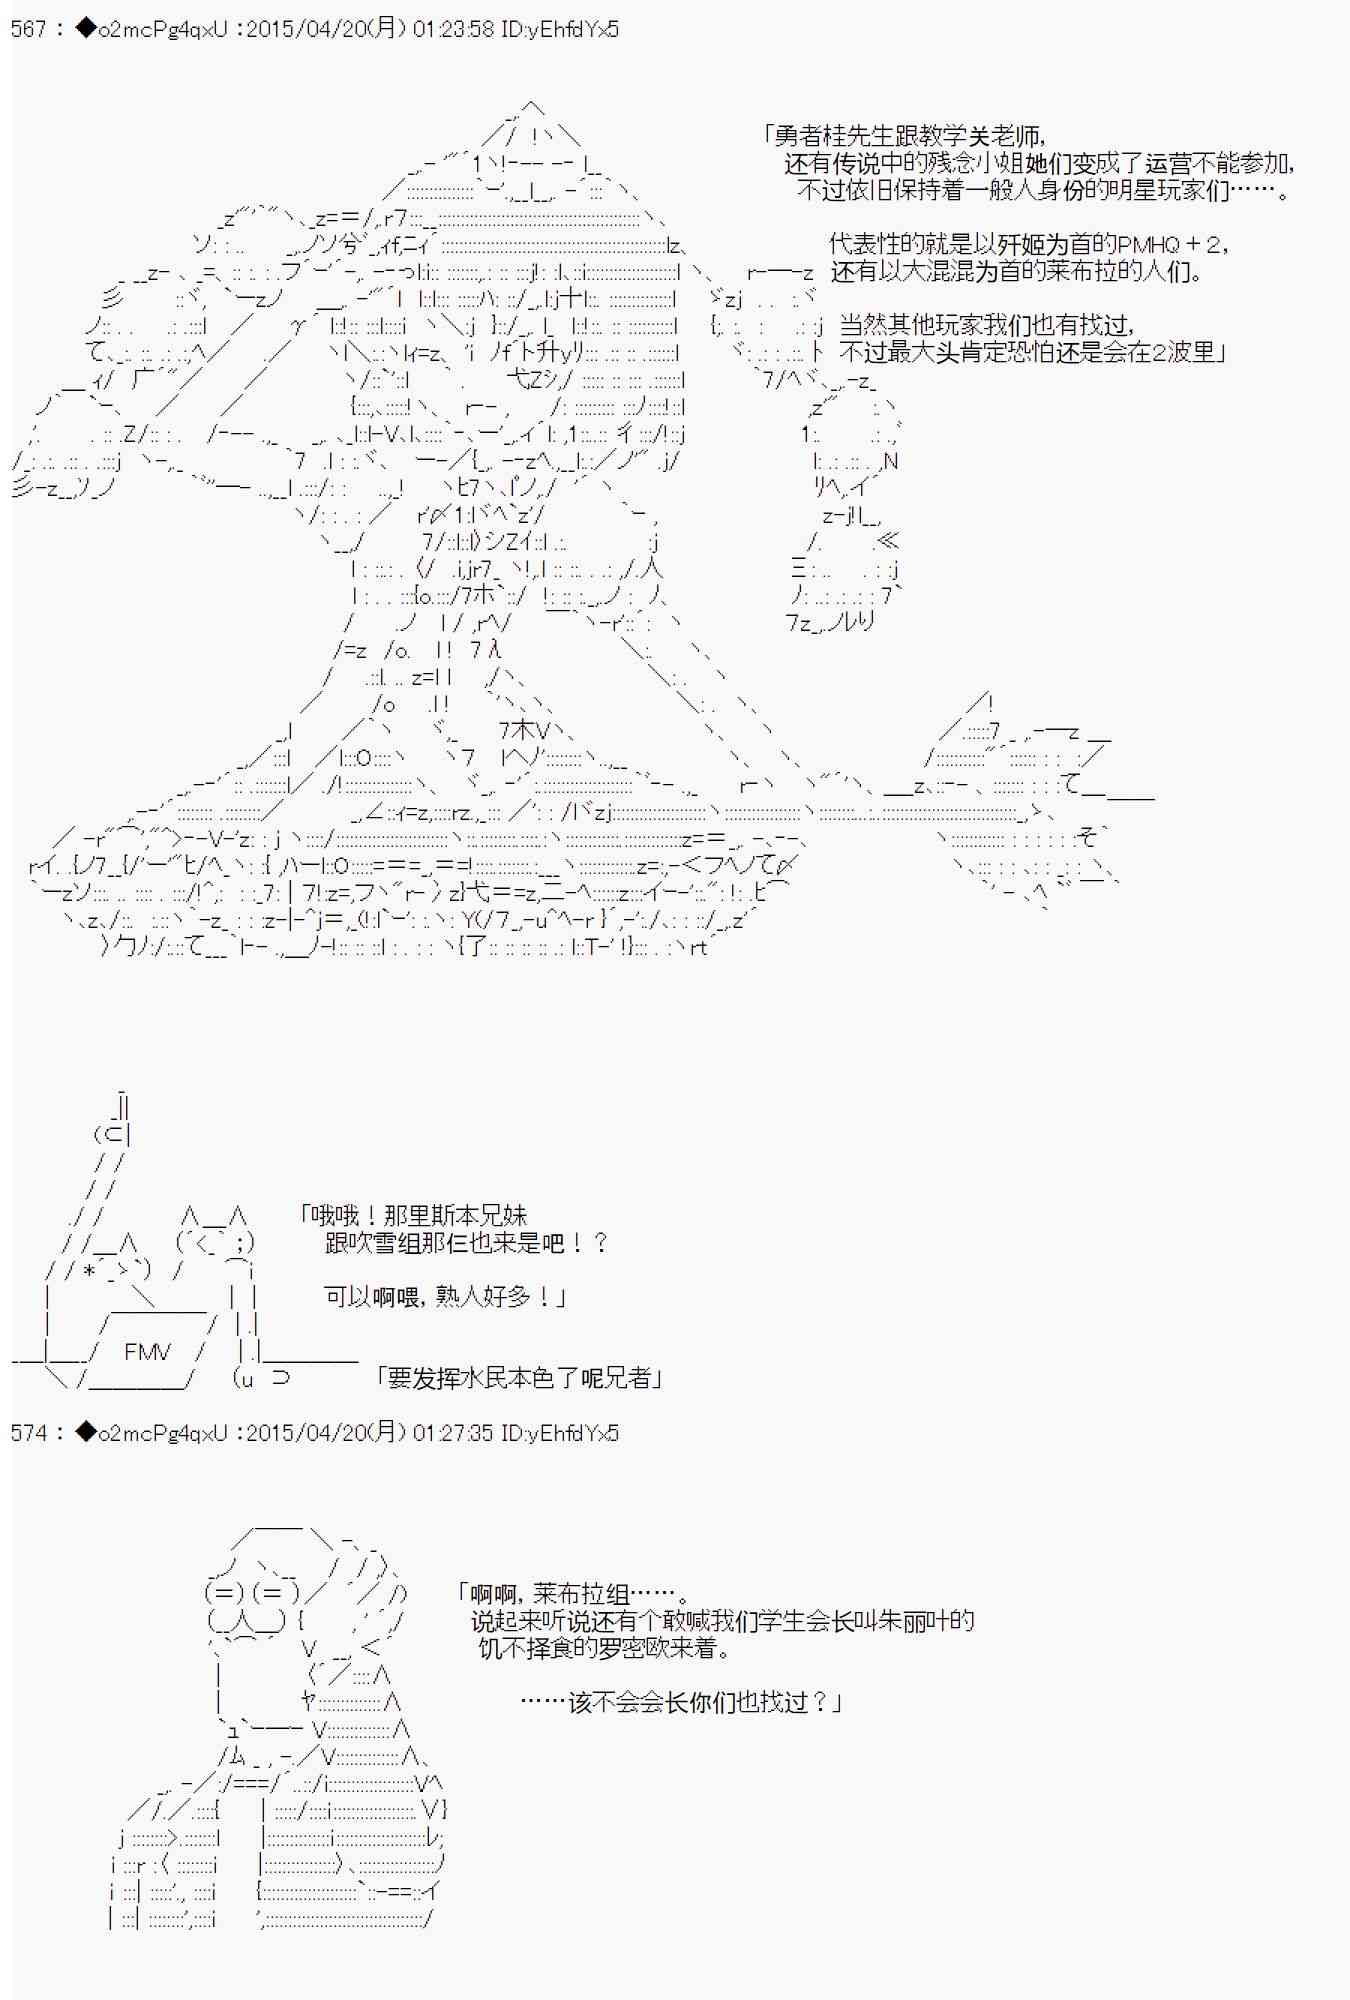 567 : ◆o2mcPg4qxU :2015/04/20(月) 01:23:58 ID:yEhfdYx5
「勇者桂先生跟教学关老师,
还有传说中的残念小姐她们变成了运营不能参加,
不过依旧保持着一般人身份的明星玩家们……。
代表性的就是以歼姬为首的PMHQ＋2,
还有以大混混为首的莱布拉的人们。
当然其他玩家我们也有找过,
不过最大头肯定恐怕还是会在2波里」
「哦哦！那里斯本兄妹
跟吹雪组那仨也来是吧！？
可以啊喂, 熟人好多！」
FMV
「要发挥水民本色了呢兄者」
574 : ◆o2mcPg4qxU :2015/04/20(月) 01:27:35 ID:yEhfdYx5
「啊啊, 莱布拉组……。
说起来听说还有个敢喊我们学生会长叫朱丽叶的
饥不择食的罗密欧来着。
……该不会会长你们也找过？」